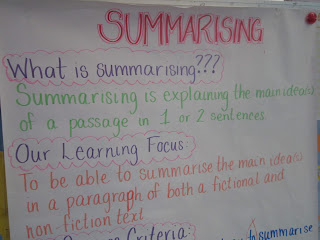 SUMMARISING
What is summarising???
Summarising is explaining the main idea(s)
of a passage in 1 or 2 sentences.
Our Learning Focus:
To be able to summarise the main idea(s)
in a paragraph of both a fictional and
non-fiction text
Criteria:
to summarise